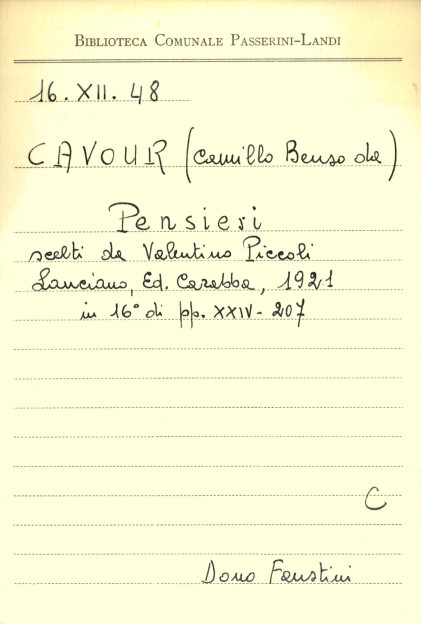 BIBLIOTECA COMUNALE PASSERINI-LANDI
16. XII. 48
CAVOUR (Camillo Benso da)
Pensieri
scelti da Valentino Piccoli
Lanciano, Ed. Carabba, 1921
in 16° di pp. XXIV - 207
C
Dono Faustini